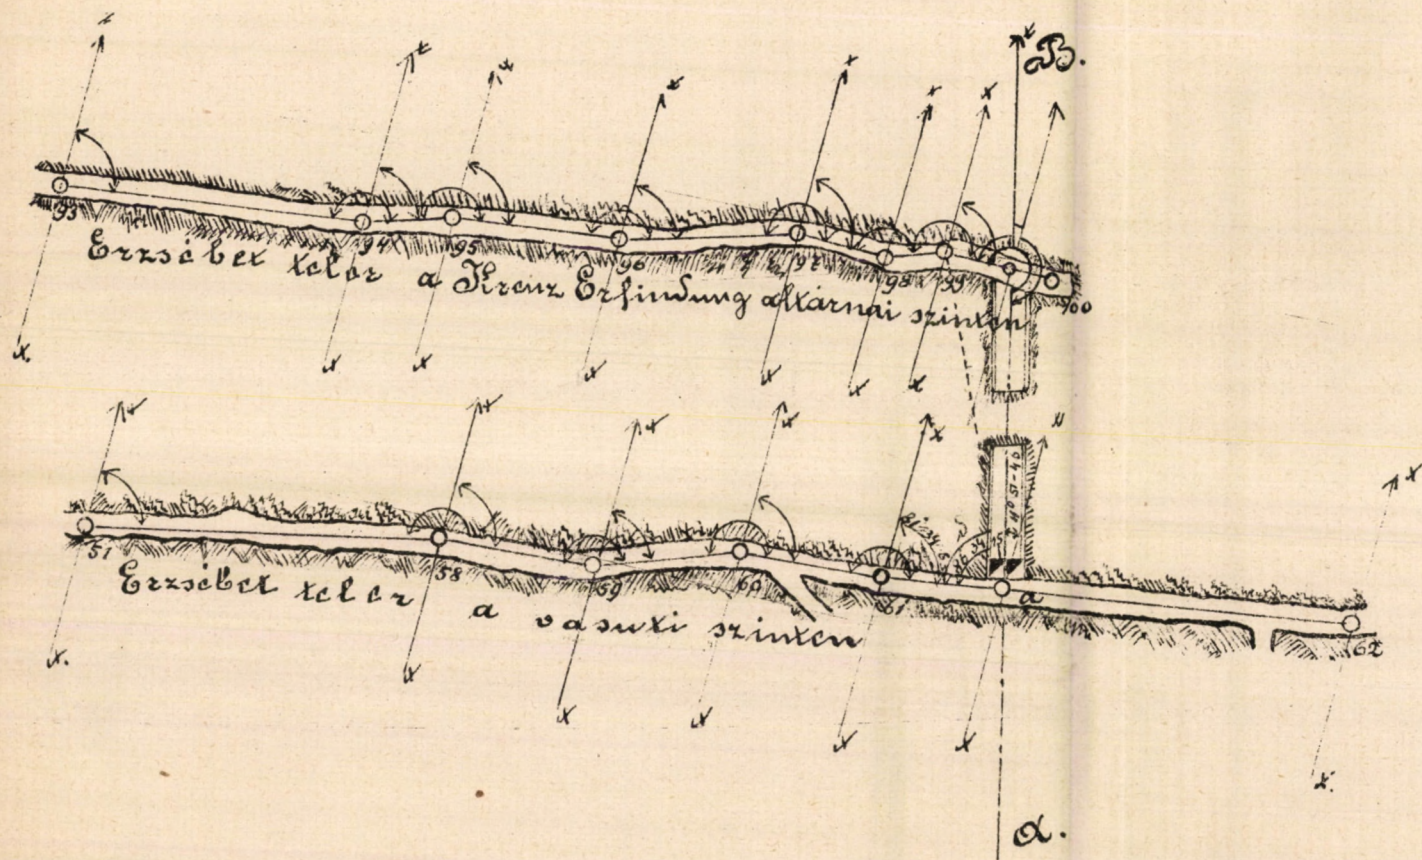 B.
93
94
95
96
97
98
99
100
Erzsébet telér a Kreuz Erfindung altárnai szinten
51
58
59
60
61
a
62
Erzsébet telér
a vasuti szinten
α.